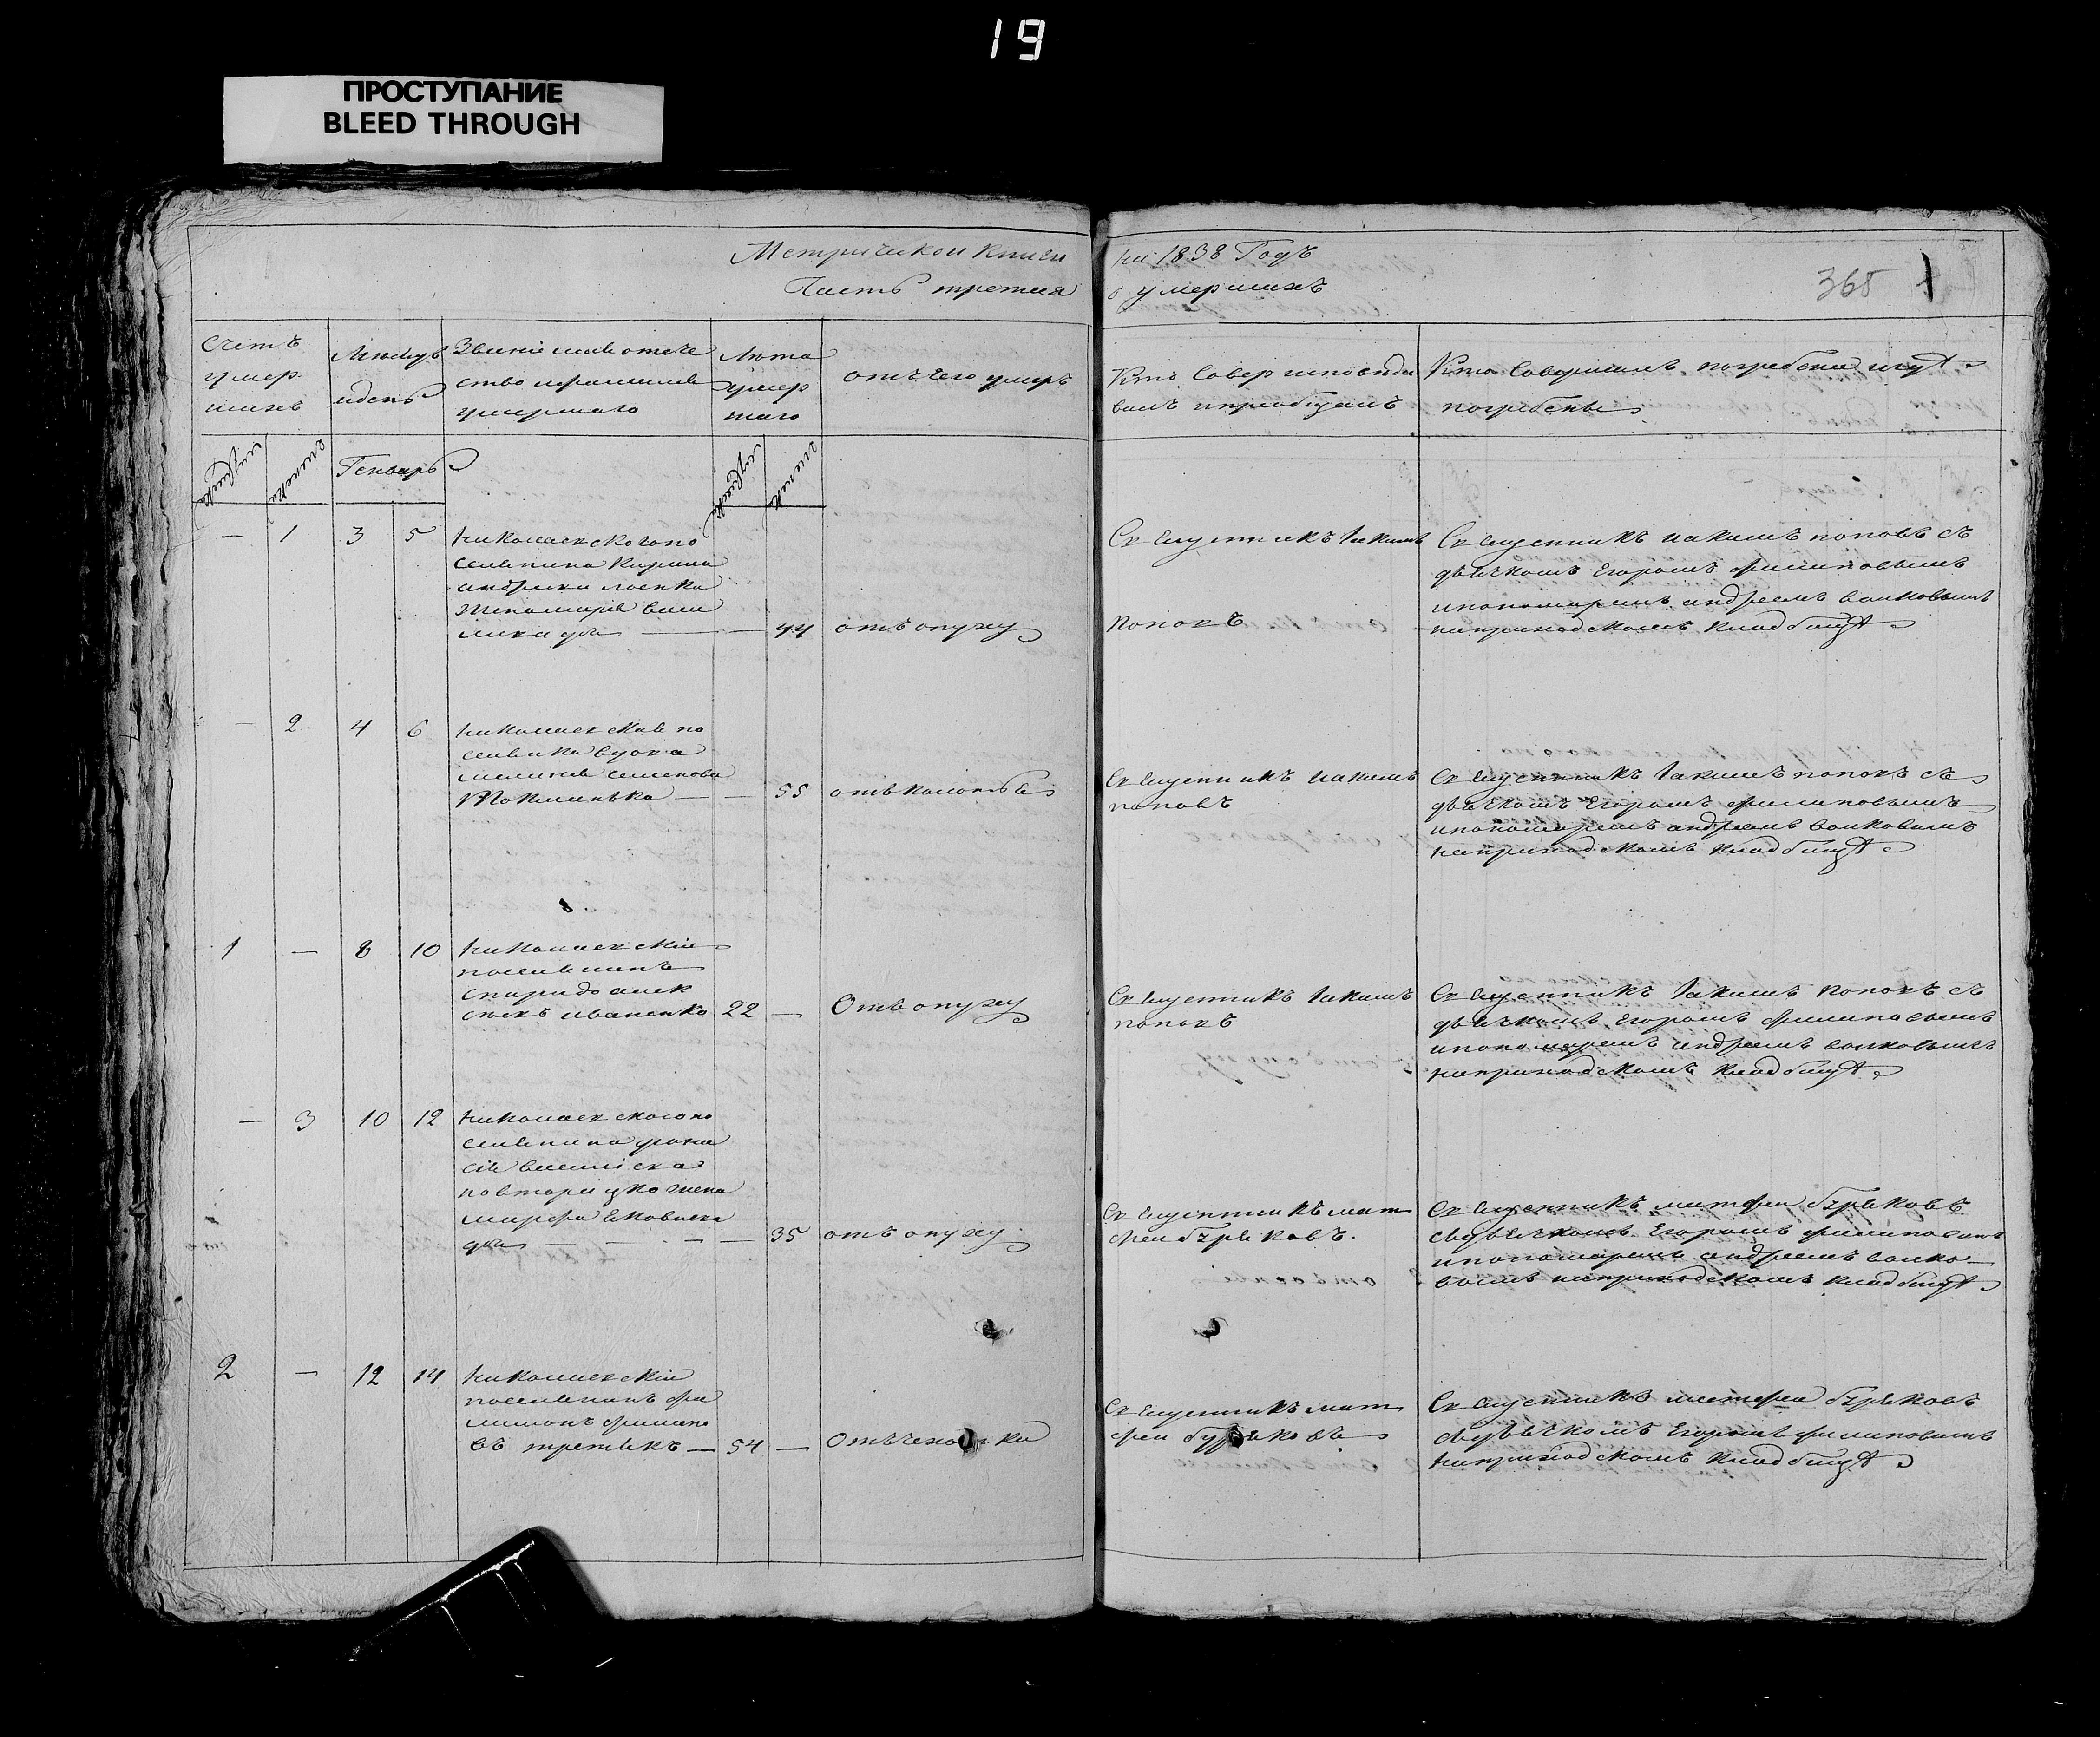 19
ПРОСТУПАНИЕ
BLEED THROUGH
Метрической книги
на 1838 Годъ
Часть третия
о умершихъ
365
Счетъ
умер
шихъ
Месяцъ
и день
ство и фамилия
умершаго
Лета
умер
шаго
отъ чего умеръ
Кто Совер исповеды
валъ и приобщалъ
Кто Совершалъ погребение и где
погребены
Генварь
— 1 3 5
Николаевского по
селянина Кирила
андреева
жена мария васи
лиева
— 44 отъ опуху
Священникъ Иакимъ
Поповъ
Священникъ иакимъ поповъ съ
дьячкомъ Егоромъ филиповымъ
и пономаремъ андреемъ волковымъ
на приходскомъ кладбище
— 2 4 6
Николаевская по
селянка вдова
семенова
— 55 отъ колотья
Священникъ иакимъ
поповъ
Священникъ Иакимъ поповъ съ
дьячкомъ Егоромъ филиповымъ
и пономаремъ андреемъ волковымъ
на приходскомъ кладбище
1 — 8 10
Николаевский
поселянинъ
спиридо алек
сеевъ иваненко
22 — Отъ опуху
Священникъ Иакимъ
поповъ
Священникъ Иакимъ Поповъ съ
дьячкомъ Егоромъ филиповымъ
и пономаремъ андреемъ волковымъ
на приходскомъ кладбище
— 3 10 12
Николаевского по
селянина
жена
марфа
— 35 отъ опуху
Священникъ мат
фей бурѣковъ.
Священникъ матфей бурѣковъ
съ дьячкомъ Егоромъ филиповымъ
и пономаремъ андреемъ волко
вымъ на приходскомъ кладбище
2 — 12 14
Николаевский
поселянинъ фи
лимонъ филипо
въ третякъ — 54 —
Священникъ мат
фей бурѣковъ
Священникъ матфей бурѣковъ
съ дьячкомъ Егоромъ филиповымъ
на приходскомъ кладбище